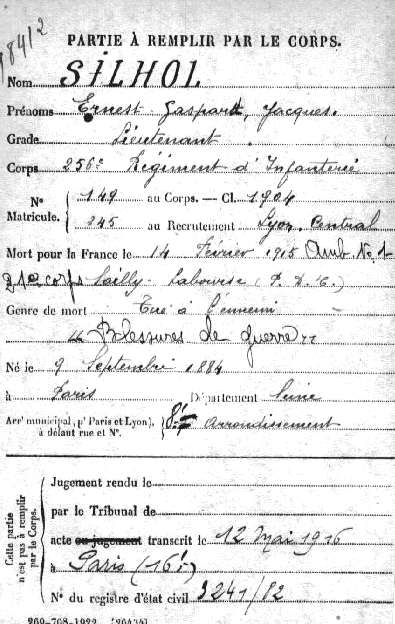 18412
PARTIE À REMPLIR PAR LE CORPS.
Nom SILHOL
Prénoms Ernest Gaspard, Jacques.
Grade Lieutenant.
Corps 256e Régiment d'Infanterie
N° Matricule. { 149 au Corps. — Cl. 1904
245 au Recrutement Lyon Central
Mort pour la France le 14 Février 1915 Amb. No 1
21e corps Sailly-Labourse (P. D. C.)
Genre de mort Tué à l'ennemi
"Blessures de guerre"
Né le 9 Septembre 1884
à Paris Département Seine
Arrt municipal, (pr Paris et Lyon), à défaut rue et N°. } 8e Arrondissement
Cette partie n'est pas à remplir par le Corps.
Jugement rendu le
par le Tribunal de
acte ou jugement transcrit le 12 Mai 1916
à Paris (16e)
N° du registre d'état civil 3241/82
269-708-1922. [26434]